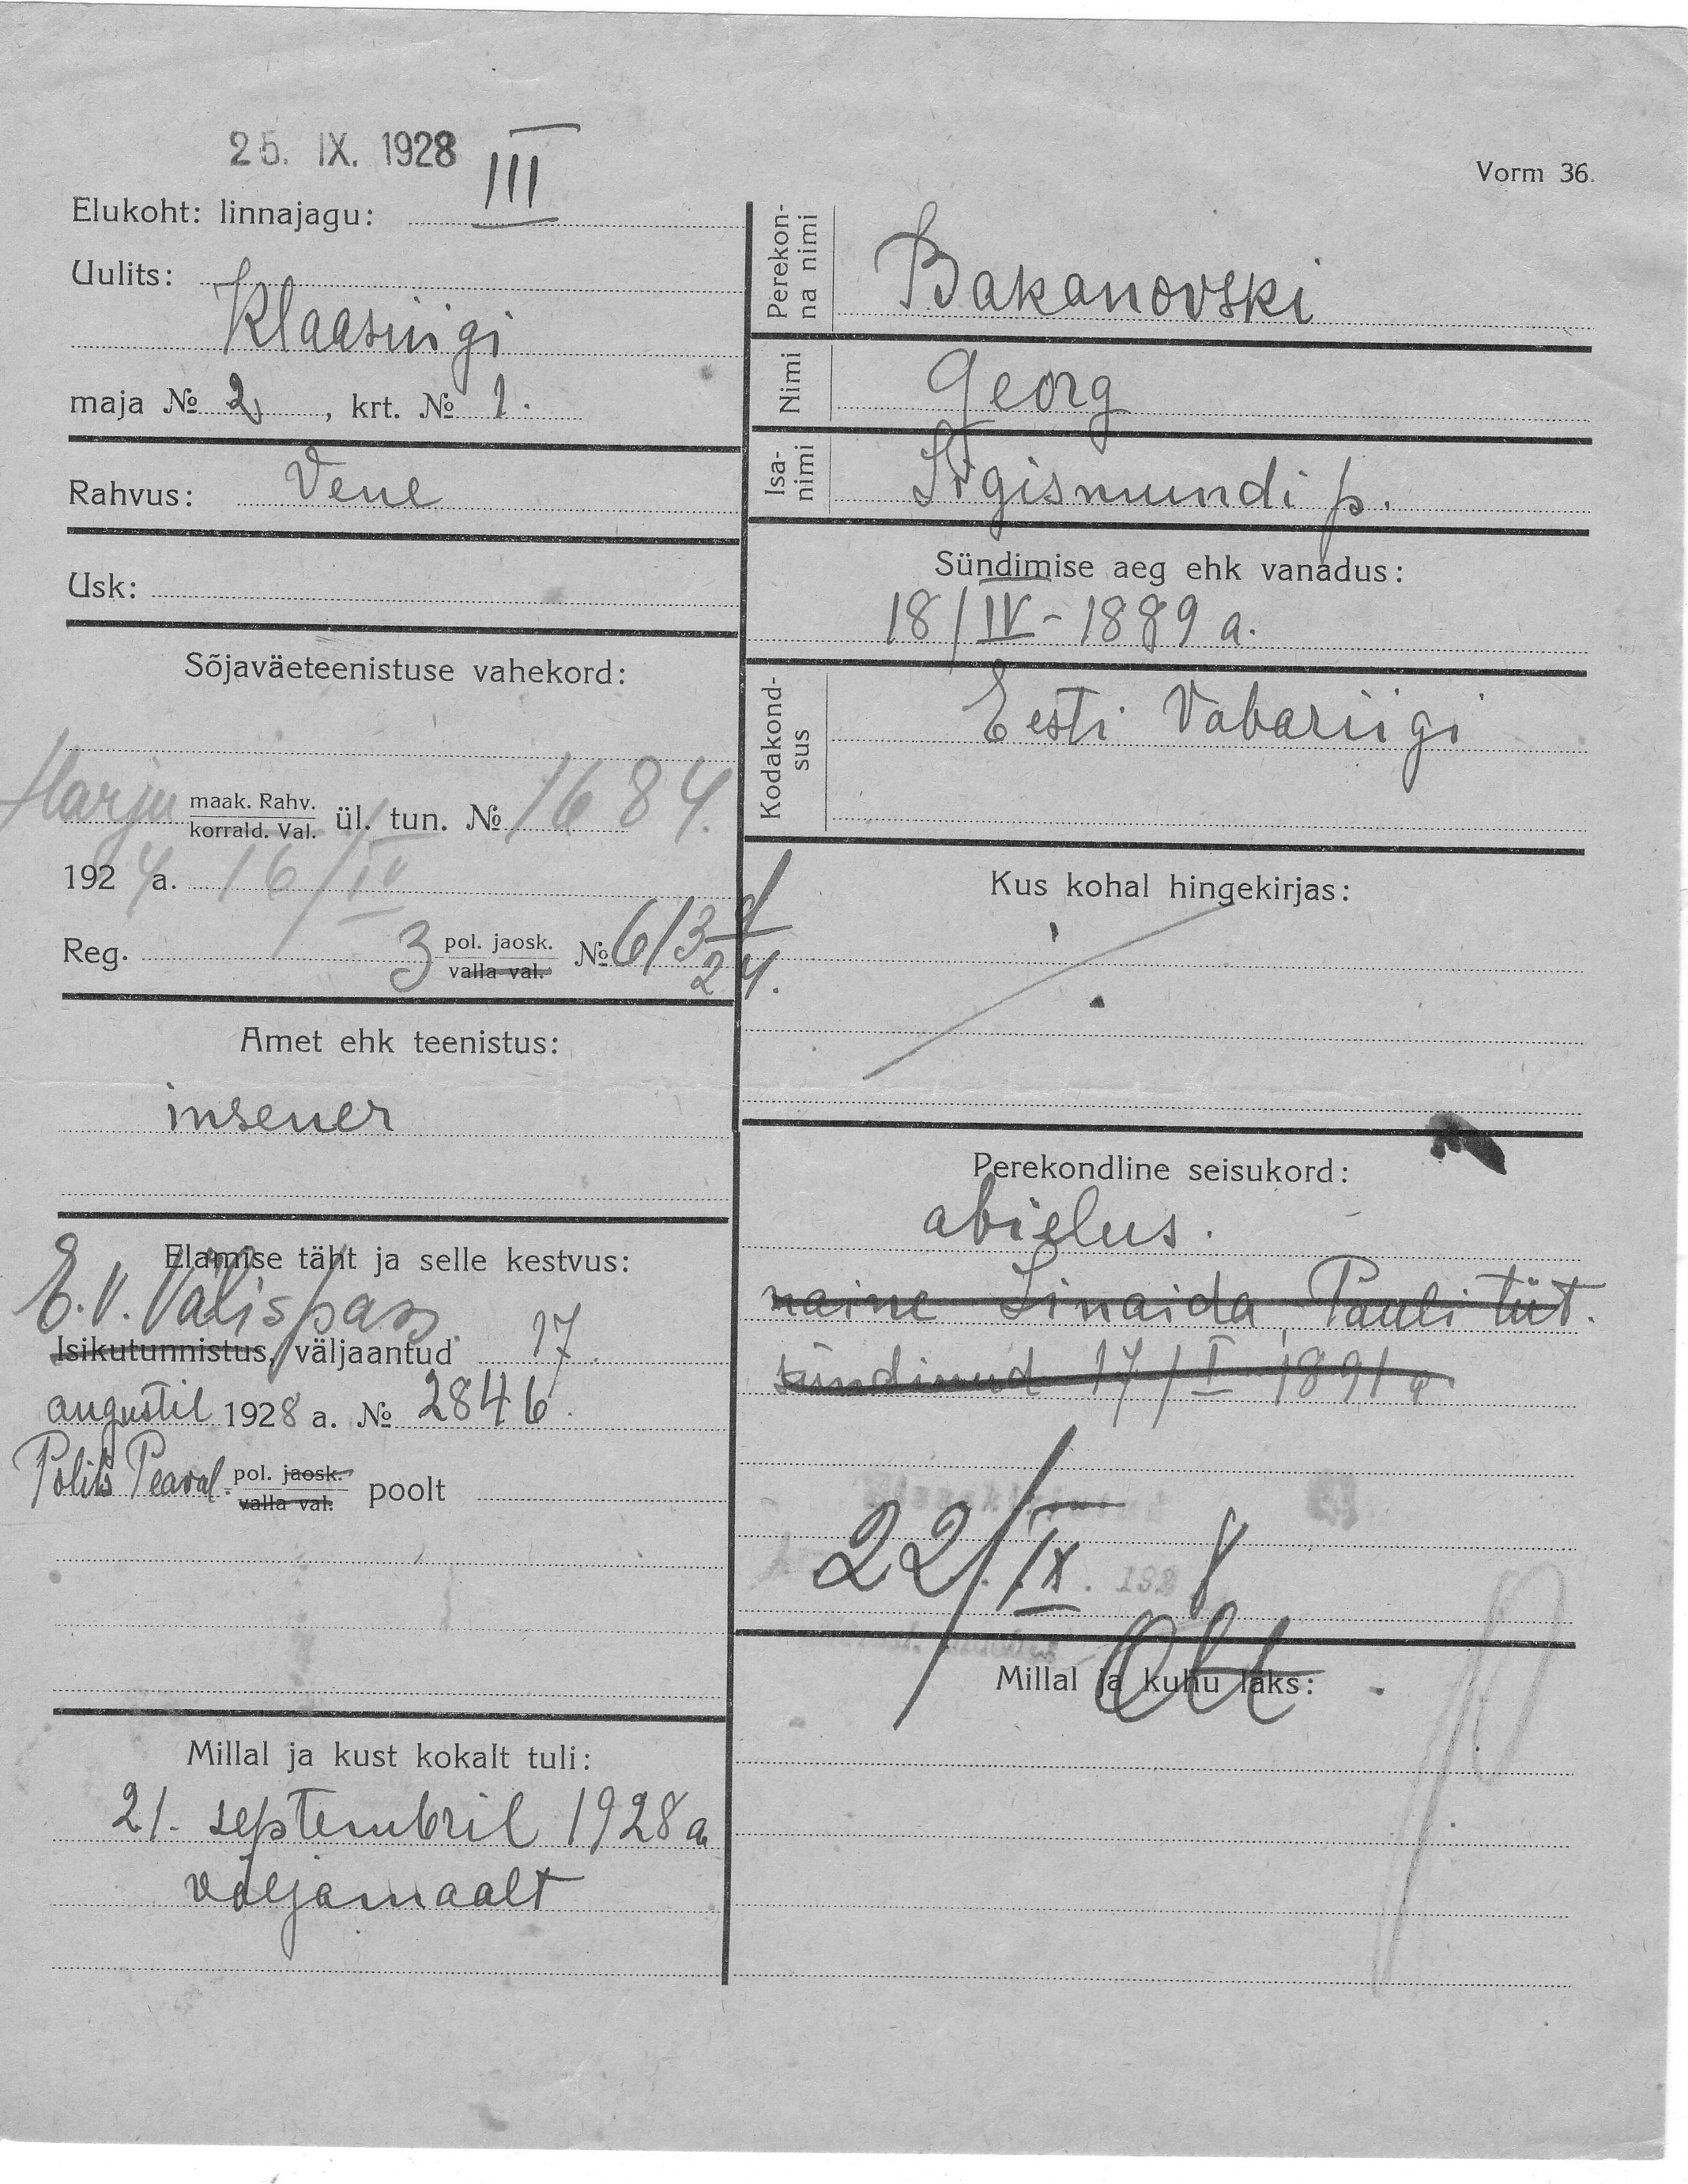 25. IX. 1928 III
Vorm 36.
Elukoht: linnajagu:
Uulits:
Klaasingi
maja № 2, krt. № 1.
Rahvus: Vene
Usk:
Sõjaväeteenistuse vahekord:
Harju maak. Rahv.
korrald. Val. ül. tun. № 1684.
1924 a. 16/IV
Reg. 3 pol. jaosk.
valla val. № 613
24.
Amet ehk teenistus:
insener
Elamise täht ja selle kestvus:
E.V. Välispass.
Isikutunnistus, väljaantud 17.
augustil 1928 a. № 2846.
Polits Peaval. pol. jaosk.
valla val. poolt
Millal ja kust kokalt tuli:
21. septembril 1928 a
väljamaalt
Perekon-
na nimi
Bakanovski
Nimi
Georg
Isa-
nimi
Sigismundi p.
Sündimise aeg ehk vanadus:
18/IV-1889 a.
Kodakond-
sus
Eesti Vabariigi
Kus kohal hingekirjas:
Perekondline seisukord:
abielus.
naine Sinaida, Pauli tüt.
sündinud 17/I 1891 a.
22/IX 8
Millal ja kuhu läks: